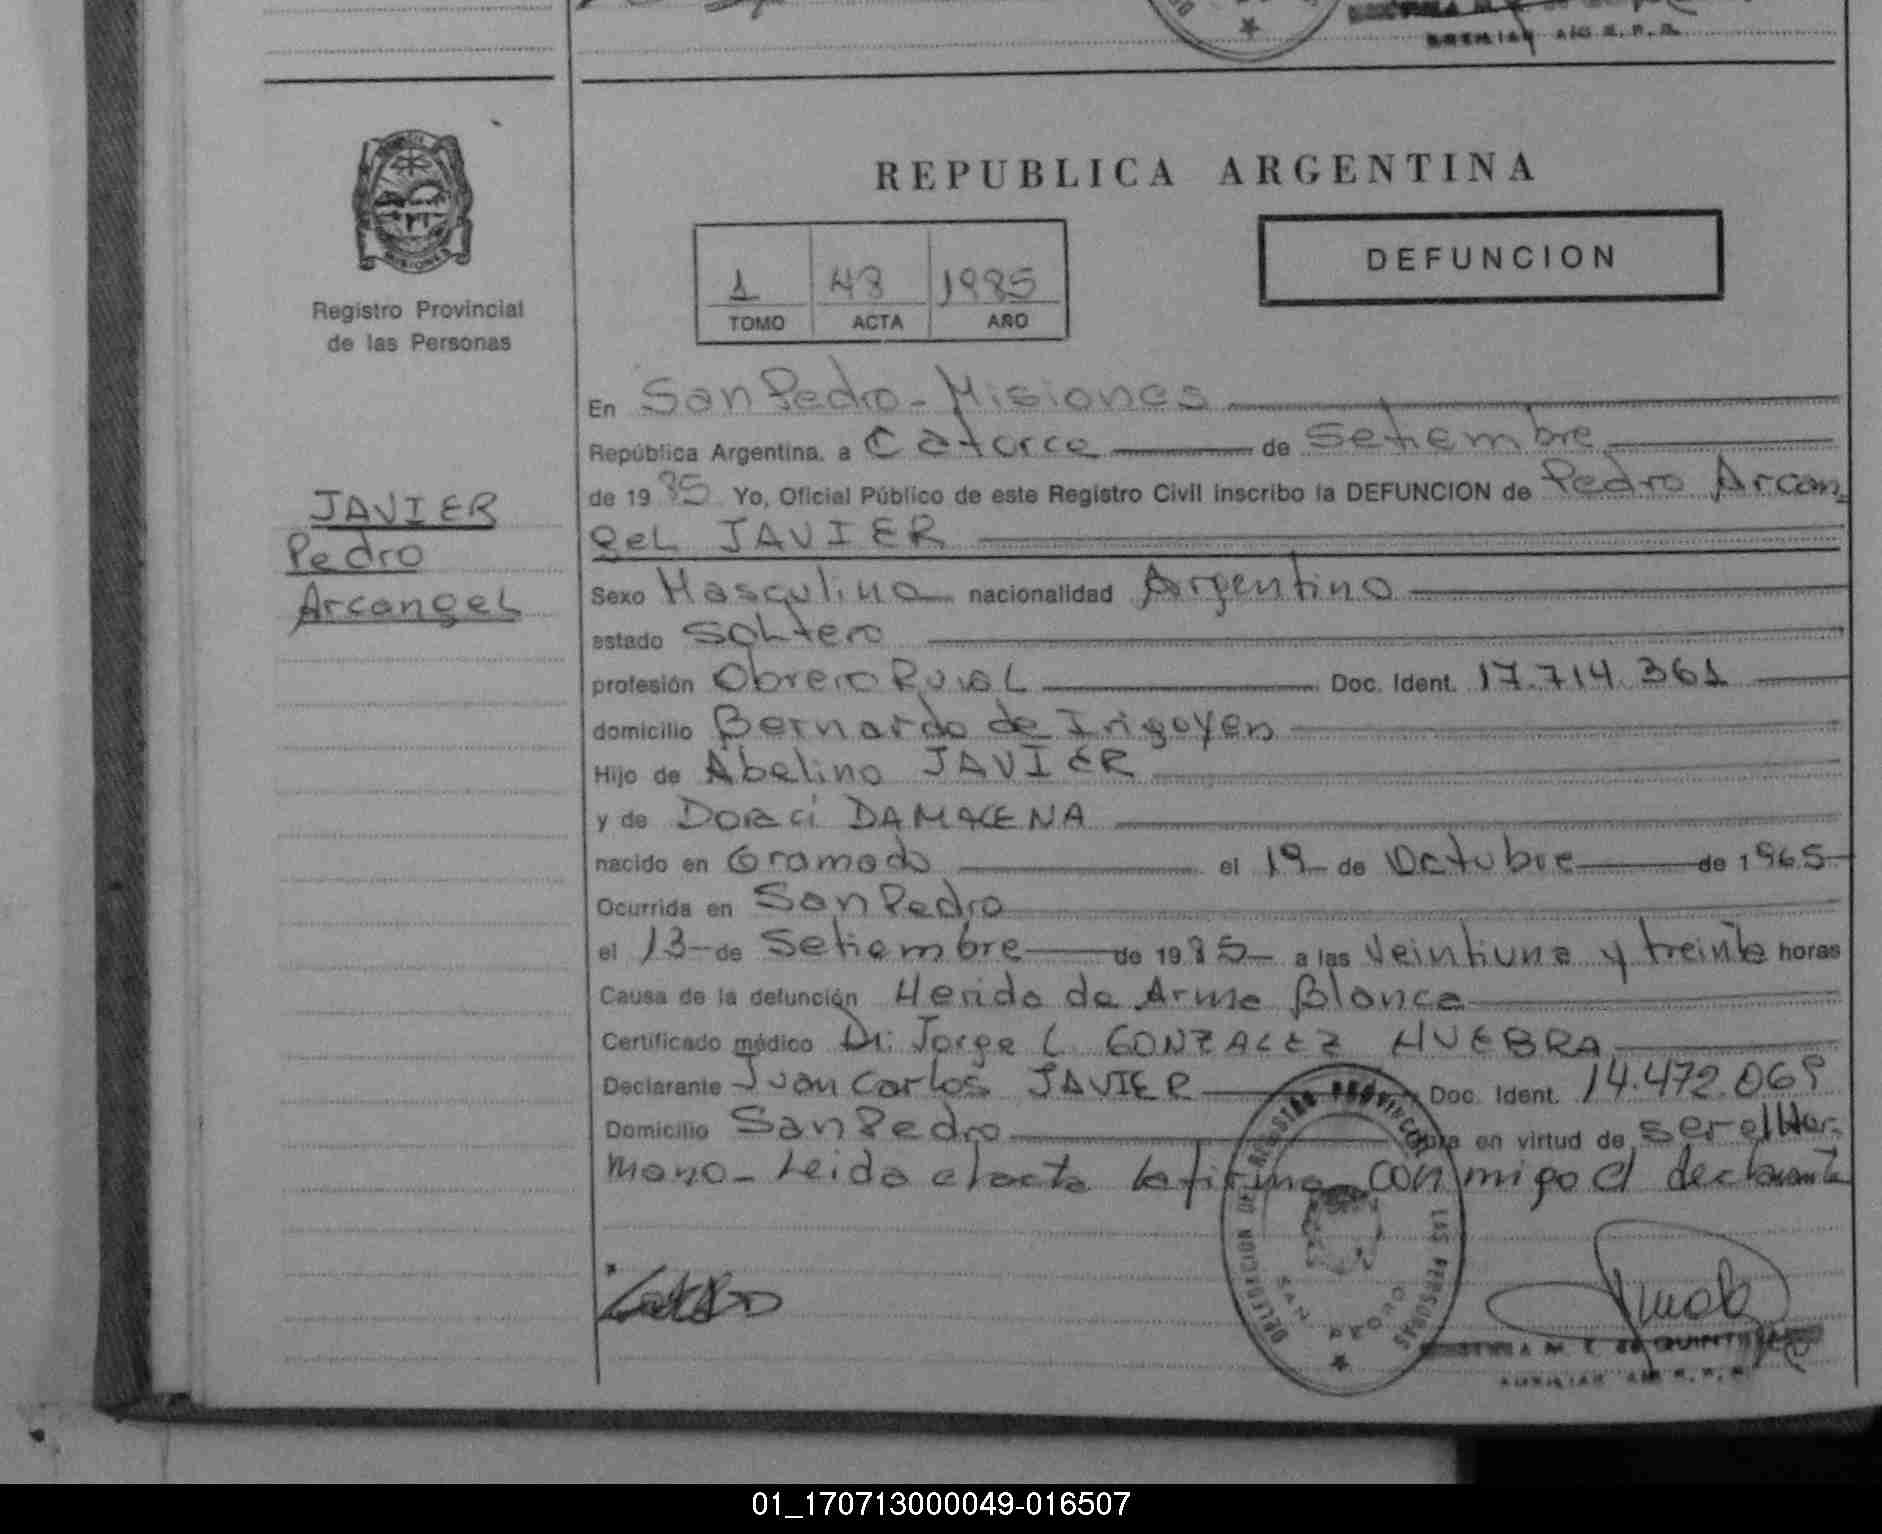 AUXILIAR A/C R. P. P.
REPUBLICA ARGENTINA
MISIONES
Registro Provincial
de las Personas
1 48 1985
TOMO ACTA AÑO
DEFUNCION
JAVIER
Pedro
Arcangel
En San Pedro - Misiones
República Argentina, a Catorce de Setiembre
de 1985 Yo, Oficial Público de este Registro Civil inscribo la DEFUNCION de Pedro Arcan
gel JAVIER
Sexo Masculino nacionalidad Argentino
estado Soltero
profesión Obrero Rural Doc. Ident. 17.714.361
domicilio Bernardo de Irigoyen
Hijo de Abelino JAVIER
y de Doraci DAMACENA
nacido en Gramado el 19 de Octubre de 1965
Ocurrida en San Pedro
el 13 de Setiembre de 1985 a las Veintiuna y treinta horas
Causa de la defunción Herida de Arma Blanca
Certificado médico Dr. Jorge L GONZALEZ HUEBRA
Declarante Juan Carlos JAVIER Doc. Ident. 14.472.069
Domicilio San Pedro Obra en virtud de ser el Her-
mano - Leida el acta la firma conmigo el declarante
DELEGACION DEL REGISTRO PROVINCIAL DE LAS PERSONAS
SAN PEDRO
M. T. de QUINTANA
AUXILIAR A/C R. P. P.
01_170713000049-016507